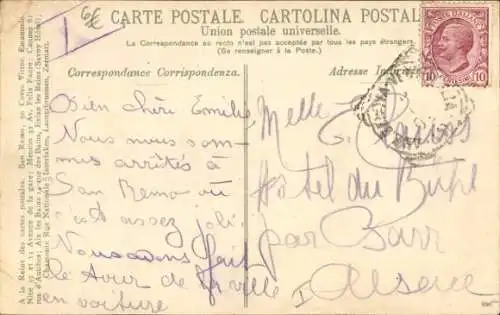 6€
CARTE POSTALE. CARTOLINA POSTAL
Union postale universelle.
La Correspondance au recto n'est pas acceptée par tous les pays étrangers.
(Se renseigner à la Poste.)
Correspondance Corrispondenza.
Adresse
Bien chère Émilie
Nous nous som-
mes arrêtés à
San Remo où
c'est assez joli
Nous avons fait
le tour de la ville
en voiture
Melle
E.
Hotel du
par Barr
Alsace
10 10
A la Reine des cartes postales. San Remo, Corso Vitt. Emanuele.
Nice, Avenue de la gare; Menton Av. Félix Faure; Cannes
rue d'Antibes; Aix les Bains rue des Bains, Evian les Bains (Savoy Hôtel)
Chamonix Rue Nationale Interlaken, Lauterbrunnen, Zermatt.